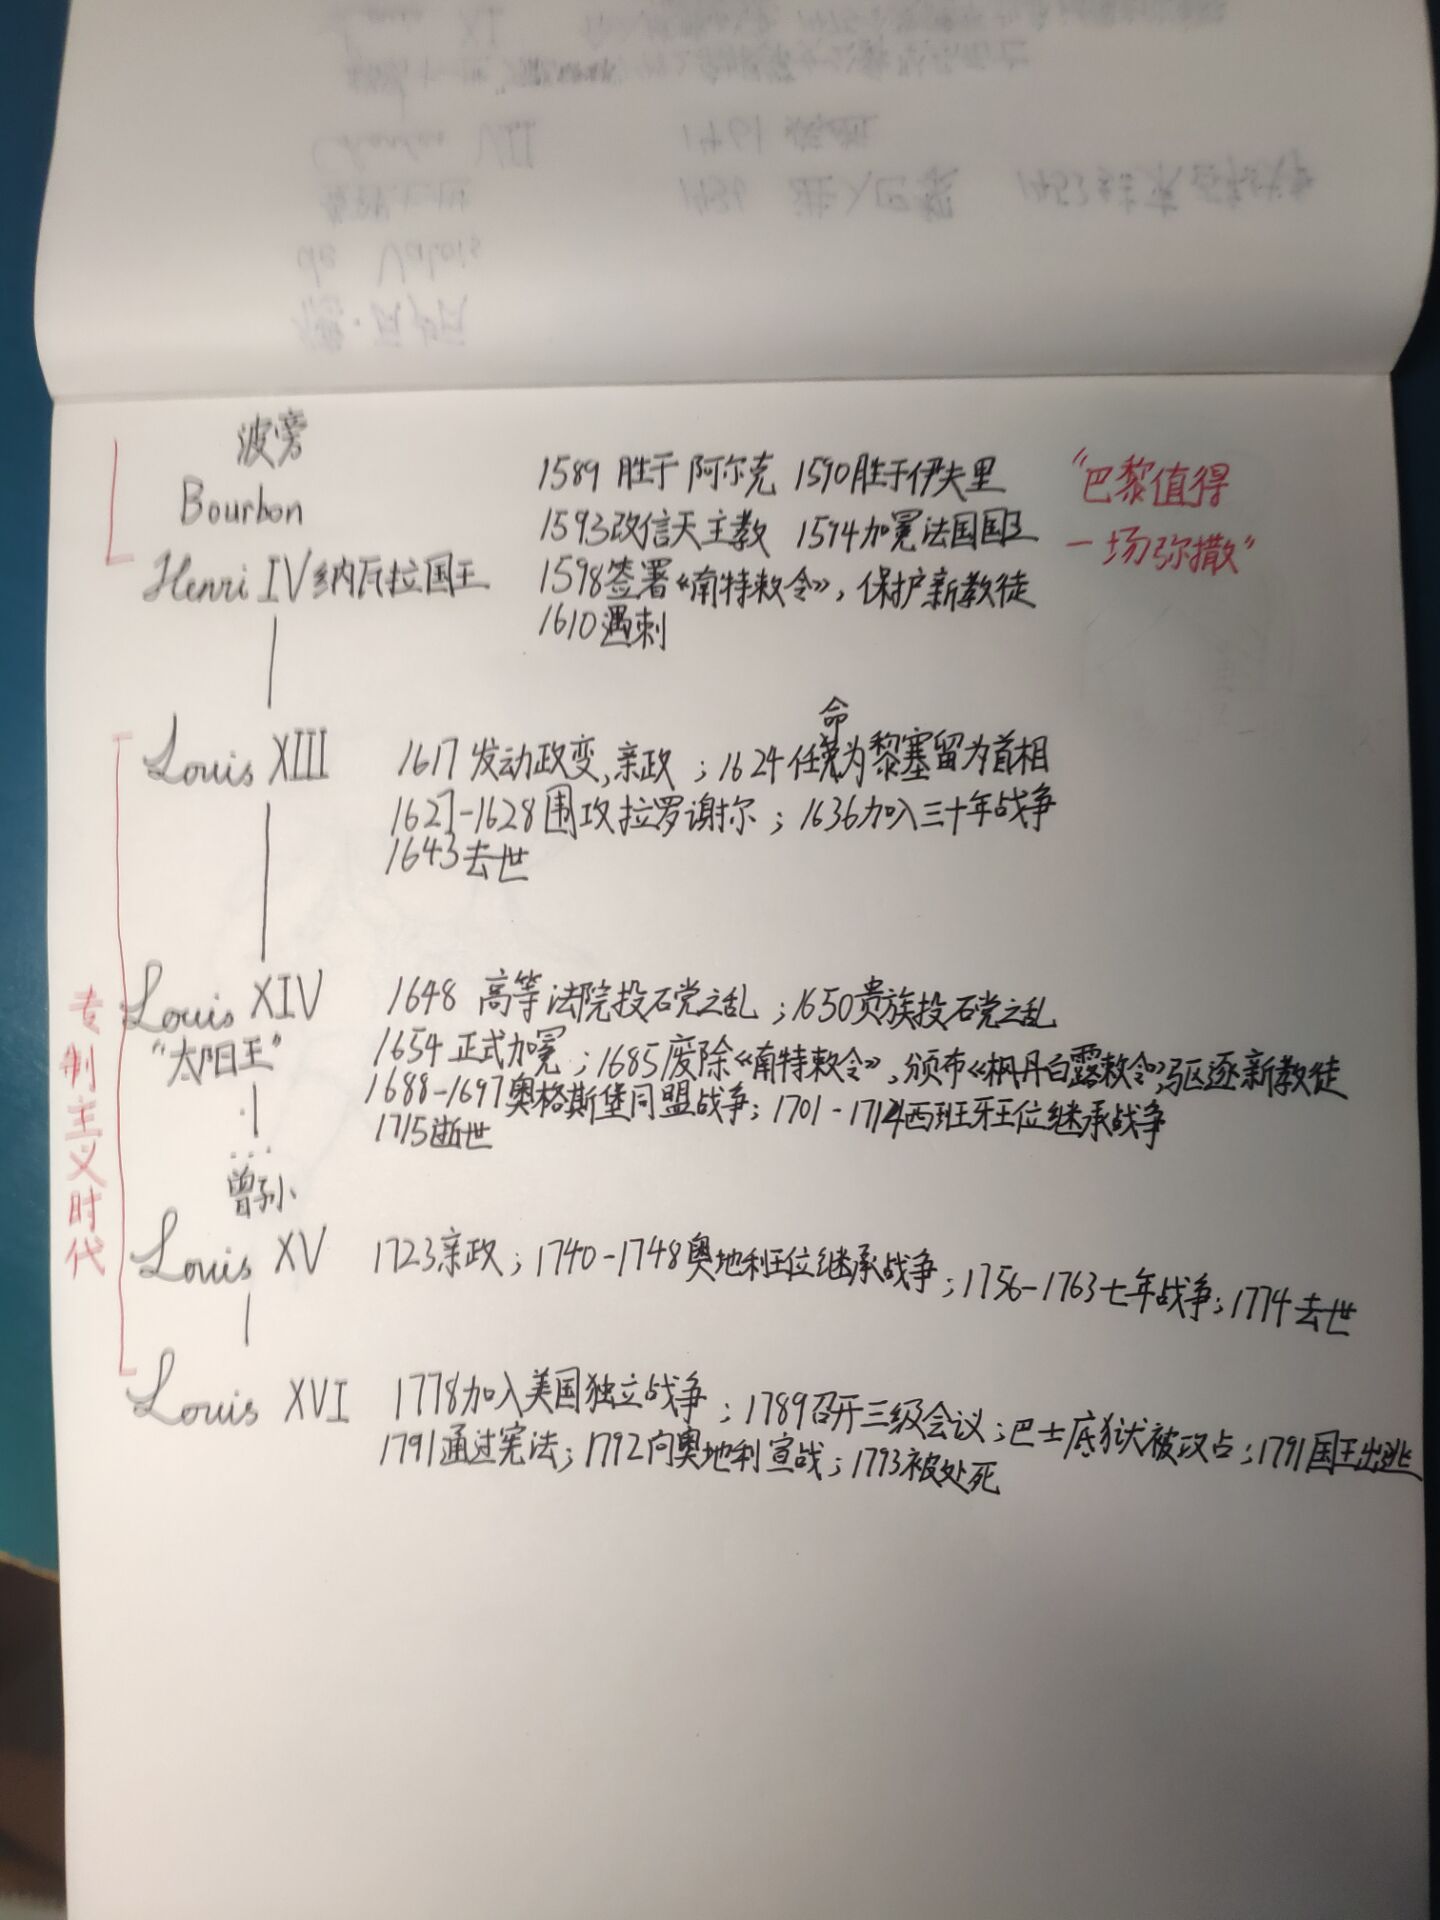 波旁
Bourbon
Henri IV 纳瓦拉国王
1589 胜于阿尔克 1590胜于伊夫里
1593改信天主教 1594加冕法国国王
1598签署《南特敕令》，保护新教徒
1610遇刺
“巴黎值得
一场弥撒”
专制主义时代
Louis XIII
命
1617 发动政变,亲政；1624任为黎塞留为首相
1627-1628围攻拉罗谢尔；1636加入三十年战争
1643去世
Louis XIV
“太阳王”
1648 高等法院投石党之乱；1650贵族投石党之乱
1654正式加冕；1685废除《南特敕令》，颁布《枫丹白露敕令》,驱逐新教徒
1688-1697奥格斯堡同盟战争；1701-1714西班牙王位继承战争
1715逝世
...
曾孙
Louis XV
1723亲政；1740-1748奥地利王位继承战争；1756-1763七年战争；1774去世
Louis XVI
1778加入美国独立战争；1789召开三级会议；巴士底狱被攻占；1791国王出逃
1791通过宪法；1792向奥地利宣战；1793被处死